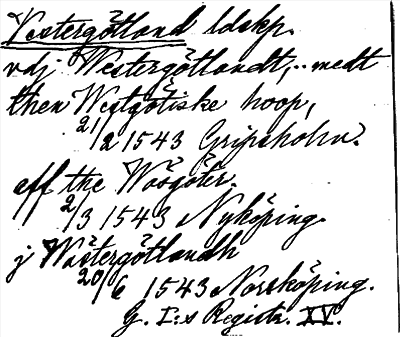 Vestergötland ldskp.
vdj Westergötlandt, .. medt
then Westgötiske hoop,
21/2 1543 Gripsholm.
aff the Wäsgöter.
2/3 1543 Nyköping.
j Wästergötlandh
20/6 1543 Norrköping.
G. I:s Registr. XV.